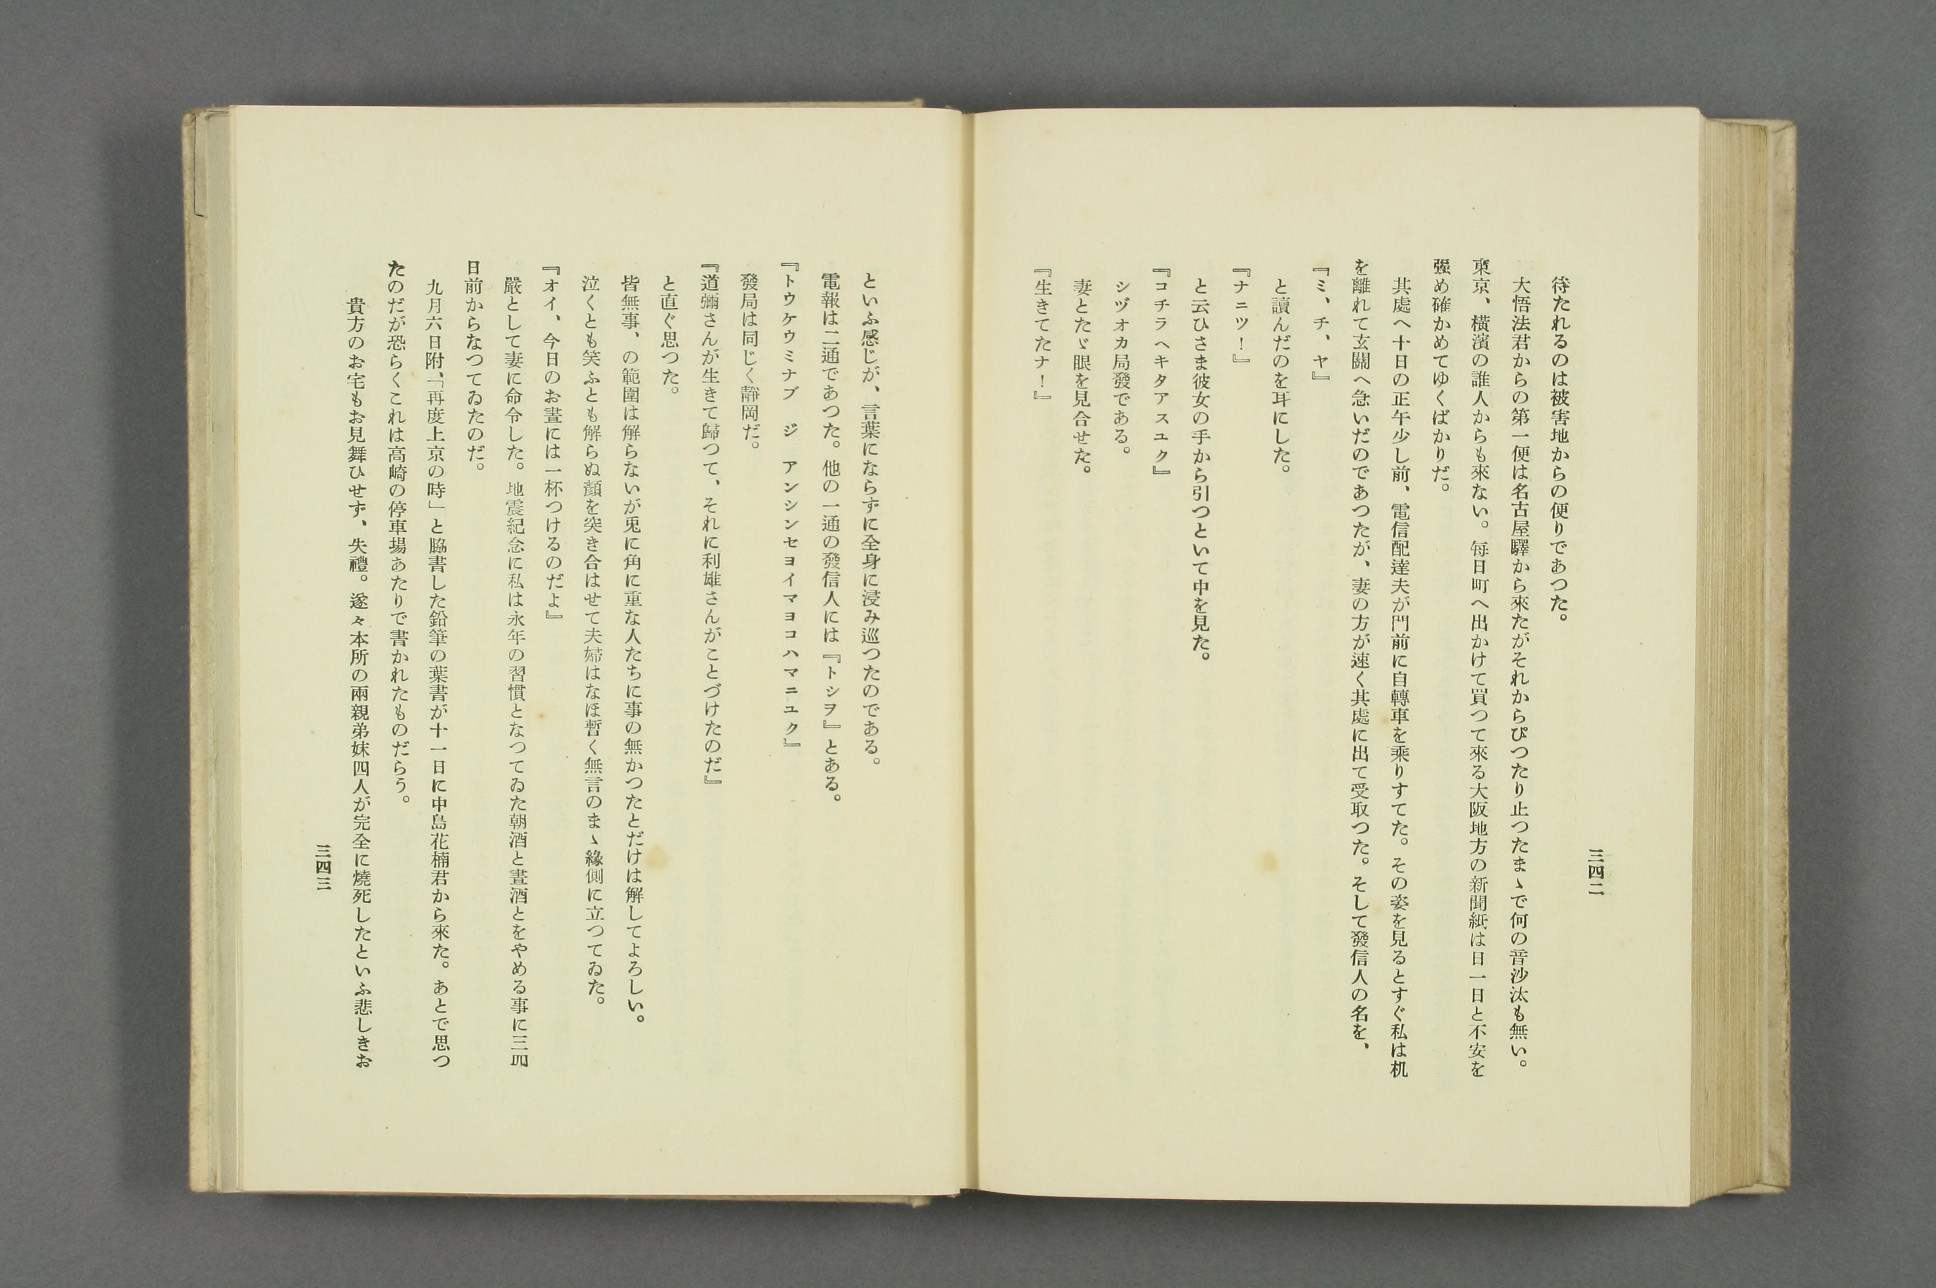 三四二
待たれるのは被害地からの便りであつた。
大悟法君からの第一便は名古屋驛から來たがそれからぴつたり止つたまゝで何の音沙汰も無い。
東京、横濱の誰人からも來ない。毎日町へ出かけて買つて來る大阪地方の新聞紙は日一日と不安を
强め確かめてゆくばかりだ。
其處へ十日の正午少し前、電信配達夫が門前に自轉車を乘りすてた。その姿を見るとすぐ私は机
を離れて玄關へ急いだのであつたが、妻の方が速く其處に出て受取つた。そして發信人の名を、
『ミ、チ、ヤ』
と讀んだのを耳にした。
『ナニツ！』
と云ひさま彼女の手から引つといて中を見た。
『コチラヘキタアスユク』
シヅオカ局發である。
妻とたゞ眼を見合せた。
『生きてたナ！』
といふ感じが、言葉にならずに全身に浸み巡つたのである。
電報は二通であつた。他の一通の發信人には『トシヲ』とある。
『トウケウミナブ　ジ　アンシンセヨイマヨコハマニユク』
發局は同じく靜岡だ。
『道彌さんが生きて歸つて、それに利雄さんがことづけたのだ』
と直ぐ思つた。
皆無事、の範圍は解らないが兎に角に重な人たちに事の無かつたとだけは解してよろしい。
泣くとも笑ふとも解らぬ顏を突き合はせて夫婦はなほ暫く無言のまゝ緣側に立つてゐた。
『オイ、今日のお晝には一杯つけるのだよ』
嚴として妻に命令した。地震紀念に私は永年の習慣となつてゐた朝酒と晝酒とをやめる事に三四
日前からなつてゐたのだ。
九月六日附、「再度上京の時」と脇書した鉛筆の葉書が十一日に中島花楠君から來た。あとで思つ
たのだが恐らくこれは高崎の停車場あたりで書かれたものだらう。
貴方のお宅もお見舞ひせず、失禮。遂々本所の兩親弟妹四人が完全に燒死したといふ悲しきお
三四三